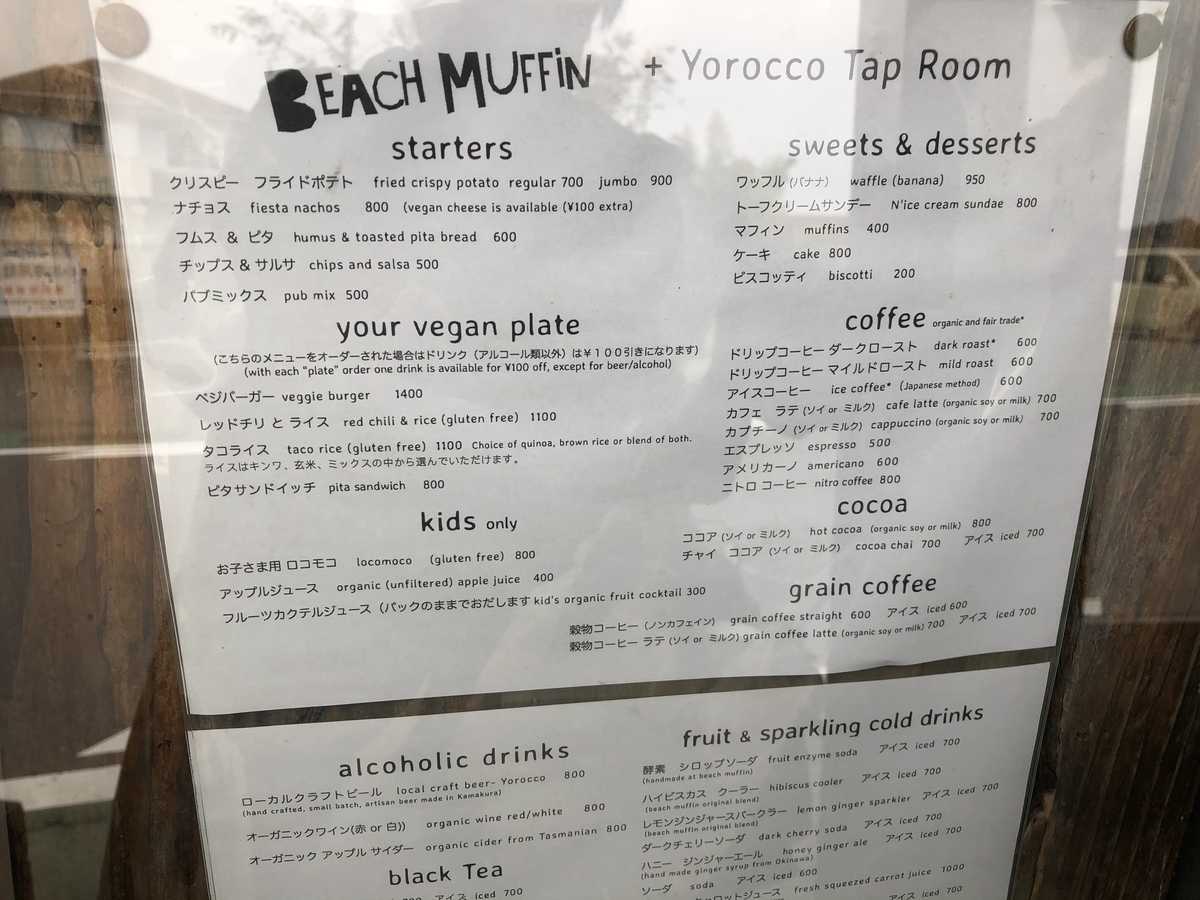 BEACH MUFFIN + Yorocco Tap Room
starters
クリスピー フライドポテト fried crispy potato regular 700 jumbo 900
ナチョス fiesta nachos 800 (vegan cheese is available (¥100 extra)
フムス & ピタ humus & toasted pita bread 600
チップス & サルサ chips and salsa 500
パブミックス pub mix 500
your vegan plate
(こちらのメニューをオーダーされた場合はドリンク（アルコール類以外）は￥１００引きになります)
(with each "plate" order one drink is available for ¥100 off, except for beer/alcohol)
ベジバーガー veggie burger 1400
レッドチリ と ライス red chili & rice (gluten free) 1100
タコライス taco rice (gluten free) 1100 Choice of quinoa, brown rice or blend of both.
ライスはキンワ、玄米、ミックスの中から選んでいただけます。
ピタサンドイッチ pita sandwich 800
kids only
お子さま用 ロコモコ locomoco (gluten free) 800
アップルジュース organic (unfiltered) apple juice 400
フルーツカクテルジュース（パックのままでおだします kid's organic fruit cocktail 300
sweets & desserts
ワッフル (バナナ) waffle (banana) 950
トーフクリームサンデー N'ice cream sundae 800
マフィン muffins 400
ケーキ cake 800
ビスコッティ biscotti 200
coffee organic and fair trade*
ドリップコーヒー ダークロースト dark roast* 600
ドリップコーヒー マイルドロースト mild roast 600
アイスコーヒー ice coffee* (Japanese method) 600
カフェ ラテ (ソイ or ミルク) cafe latte (organic soy or milk) 700
カプチーノ (ソイ or ミルク) cappuccino (organic soy or milk) 700
エスプレッソ espresso 500
アメリカーノ americano 600
ニトロ コーヒー nitro coffee 800
cocoa
ココア (ソイ or ミルク) hot cocoa (organic soy or milk) 800
チャイ ココア (ソイ or ミルク) cocoa chai 700 アイス iced 700
grain coffee
穀物コーヒー (ノンカフェイン) grain coffee straight 600 アイス iced 600
穀物コーヒー ラテ (ソイ or ミルク) grain coffee latte (organic soy or milk) 700 アイス iced 700
alcoholic drinks
ローカルクラフトビール local craft beer- Yorocco 800
(hand crafted, small batch, artisan beer made in Kamakura)
オーガニックワイン(赤 or 白)) organic wine red/white 800
オーガニック アップル サイダー organic cider from Tasmanian 800
black Tea
アイス iced 700
fruit & sparkling cold drinks
酵素 シロップソーダ fruit enzyme soda アイス iced 700
(handmade at beach muffin)
ハイビスカス クーラー hibiscus cooler アイス iced 700
(beach muffin original blend)
レモンジンジャースパークラー lemon ginger sparkler アイス iced 700
(beach muffin original blend)
ダークチェリーソーダ dark cherry soda アイス iced 700
ハニー ジンジャーエール honey ginger ale アイス iced 700
(hand made ginger syrup from Okinawa)
ソーダ soda アイス iced 600
キャロットジュース fresh squeezed carrot juice 1000
アイス iced 700